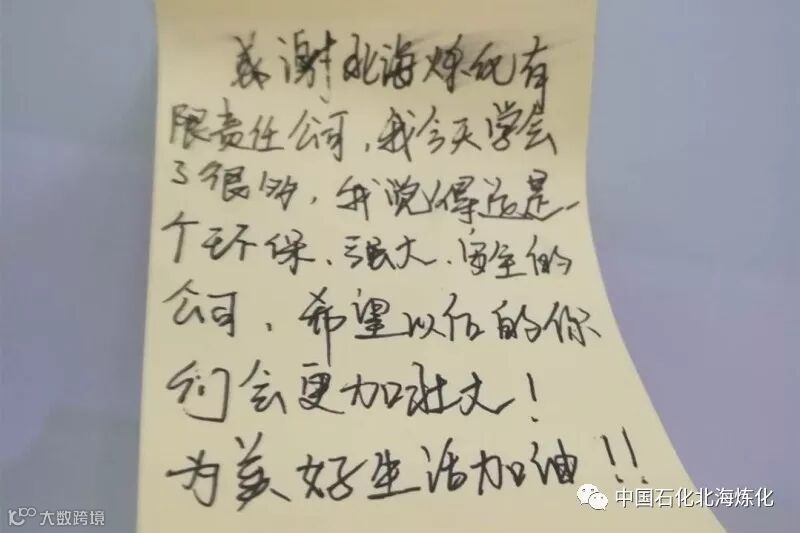 感谢北海炼化有
限责任公司,我今天学会
了很多,我觉得这是一
个环保、强大、安全的
公司,希望以后的你
们会更加壮大!
为美好生活加油!!
中国石化北海炼化
100% 大数跨境